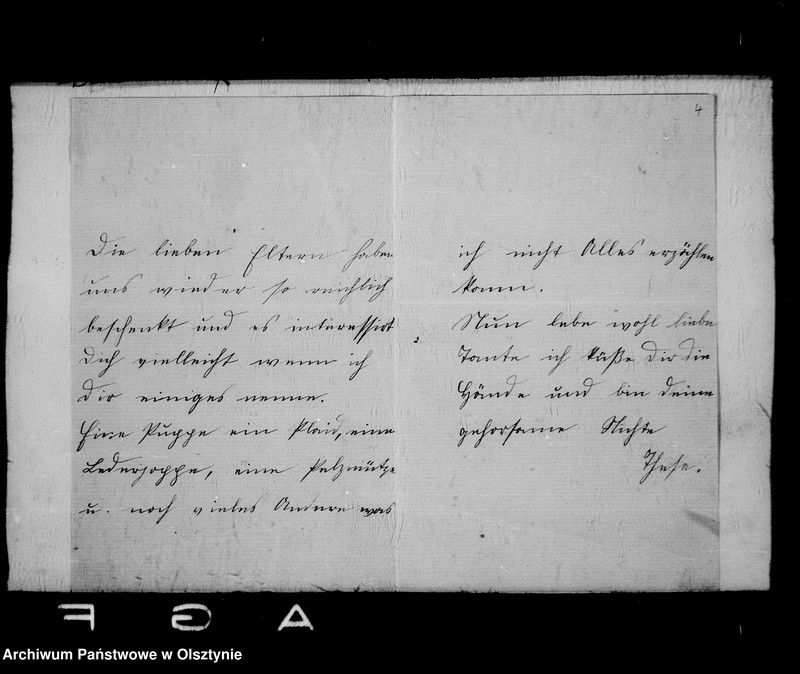 4
Die lieben Eltern haben
uns wieder so reichlich
beschenkt und es interessirt
Dich vielleicht wenn ich
Dir einiges nenne.
Eine Puppe ein Plaid, eine
Lederjoppe, eine Pelzmütze
u. noch vieles Andere was
ich nicht Alles erzählen
kann.
Nun lebe wohl liebe
Tante ich küße Dir die
Hände und bin Deine
gehorsame Nichte
These.
F G A
Archiwum Państwowe w Olsztynie